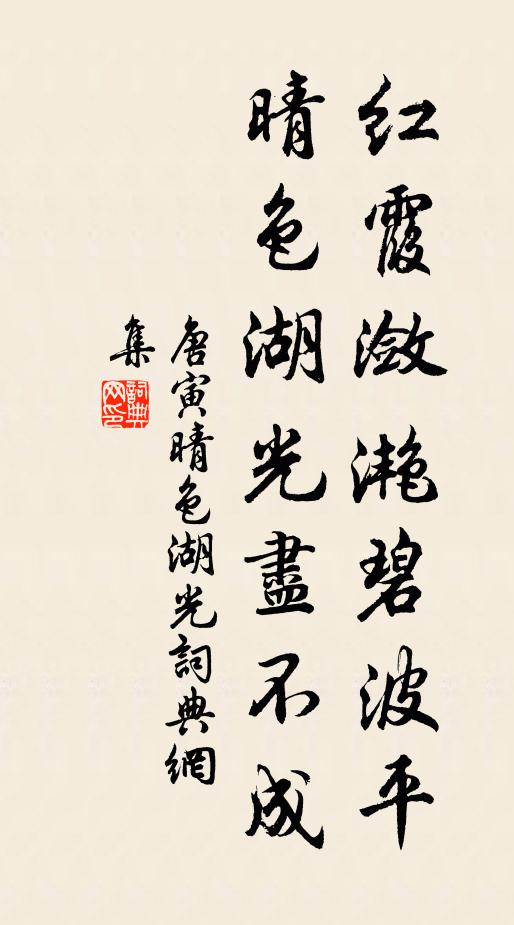 红霞潋滟碧波平
晴色湖光盡不成
唐寅晴色湖光詞典網
集
詞典
网印